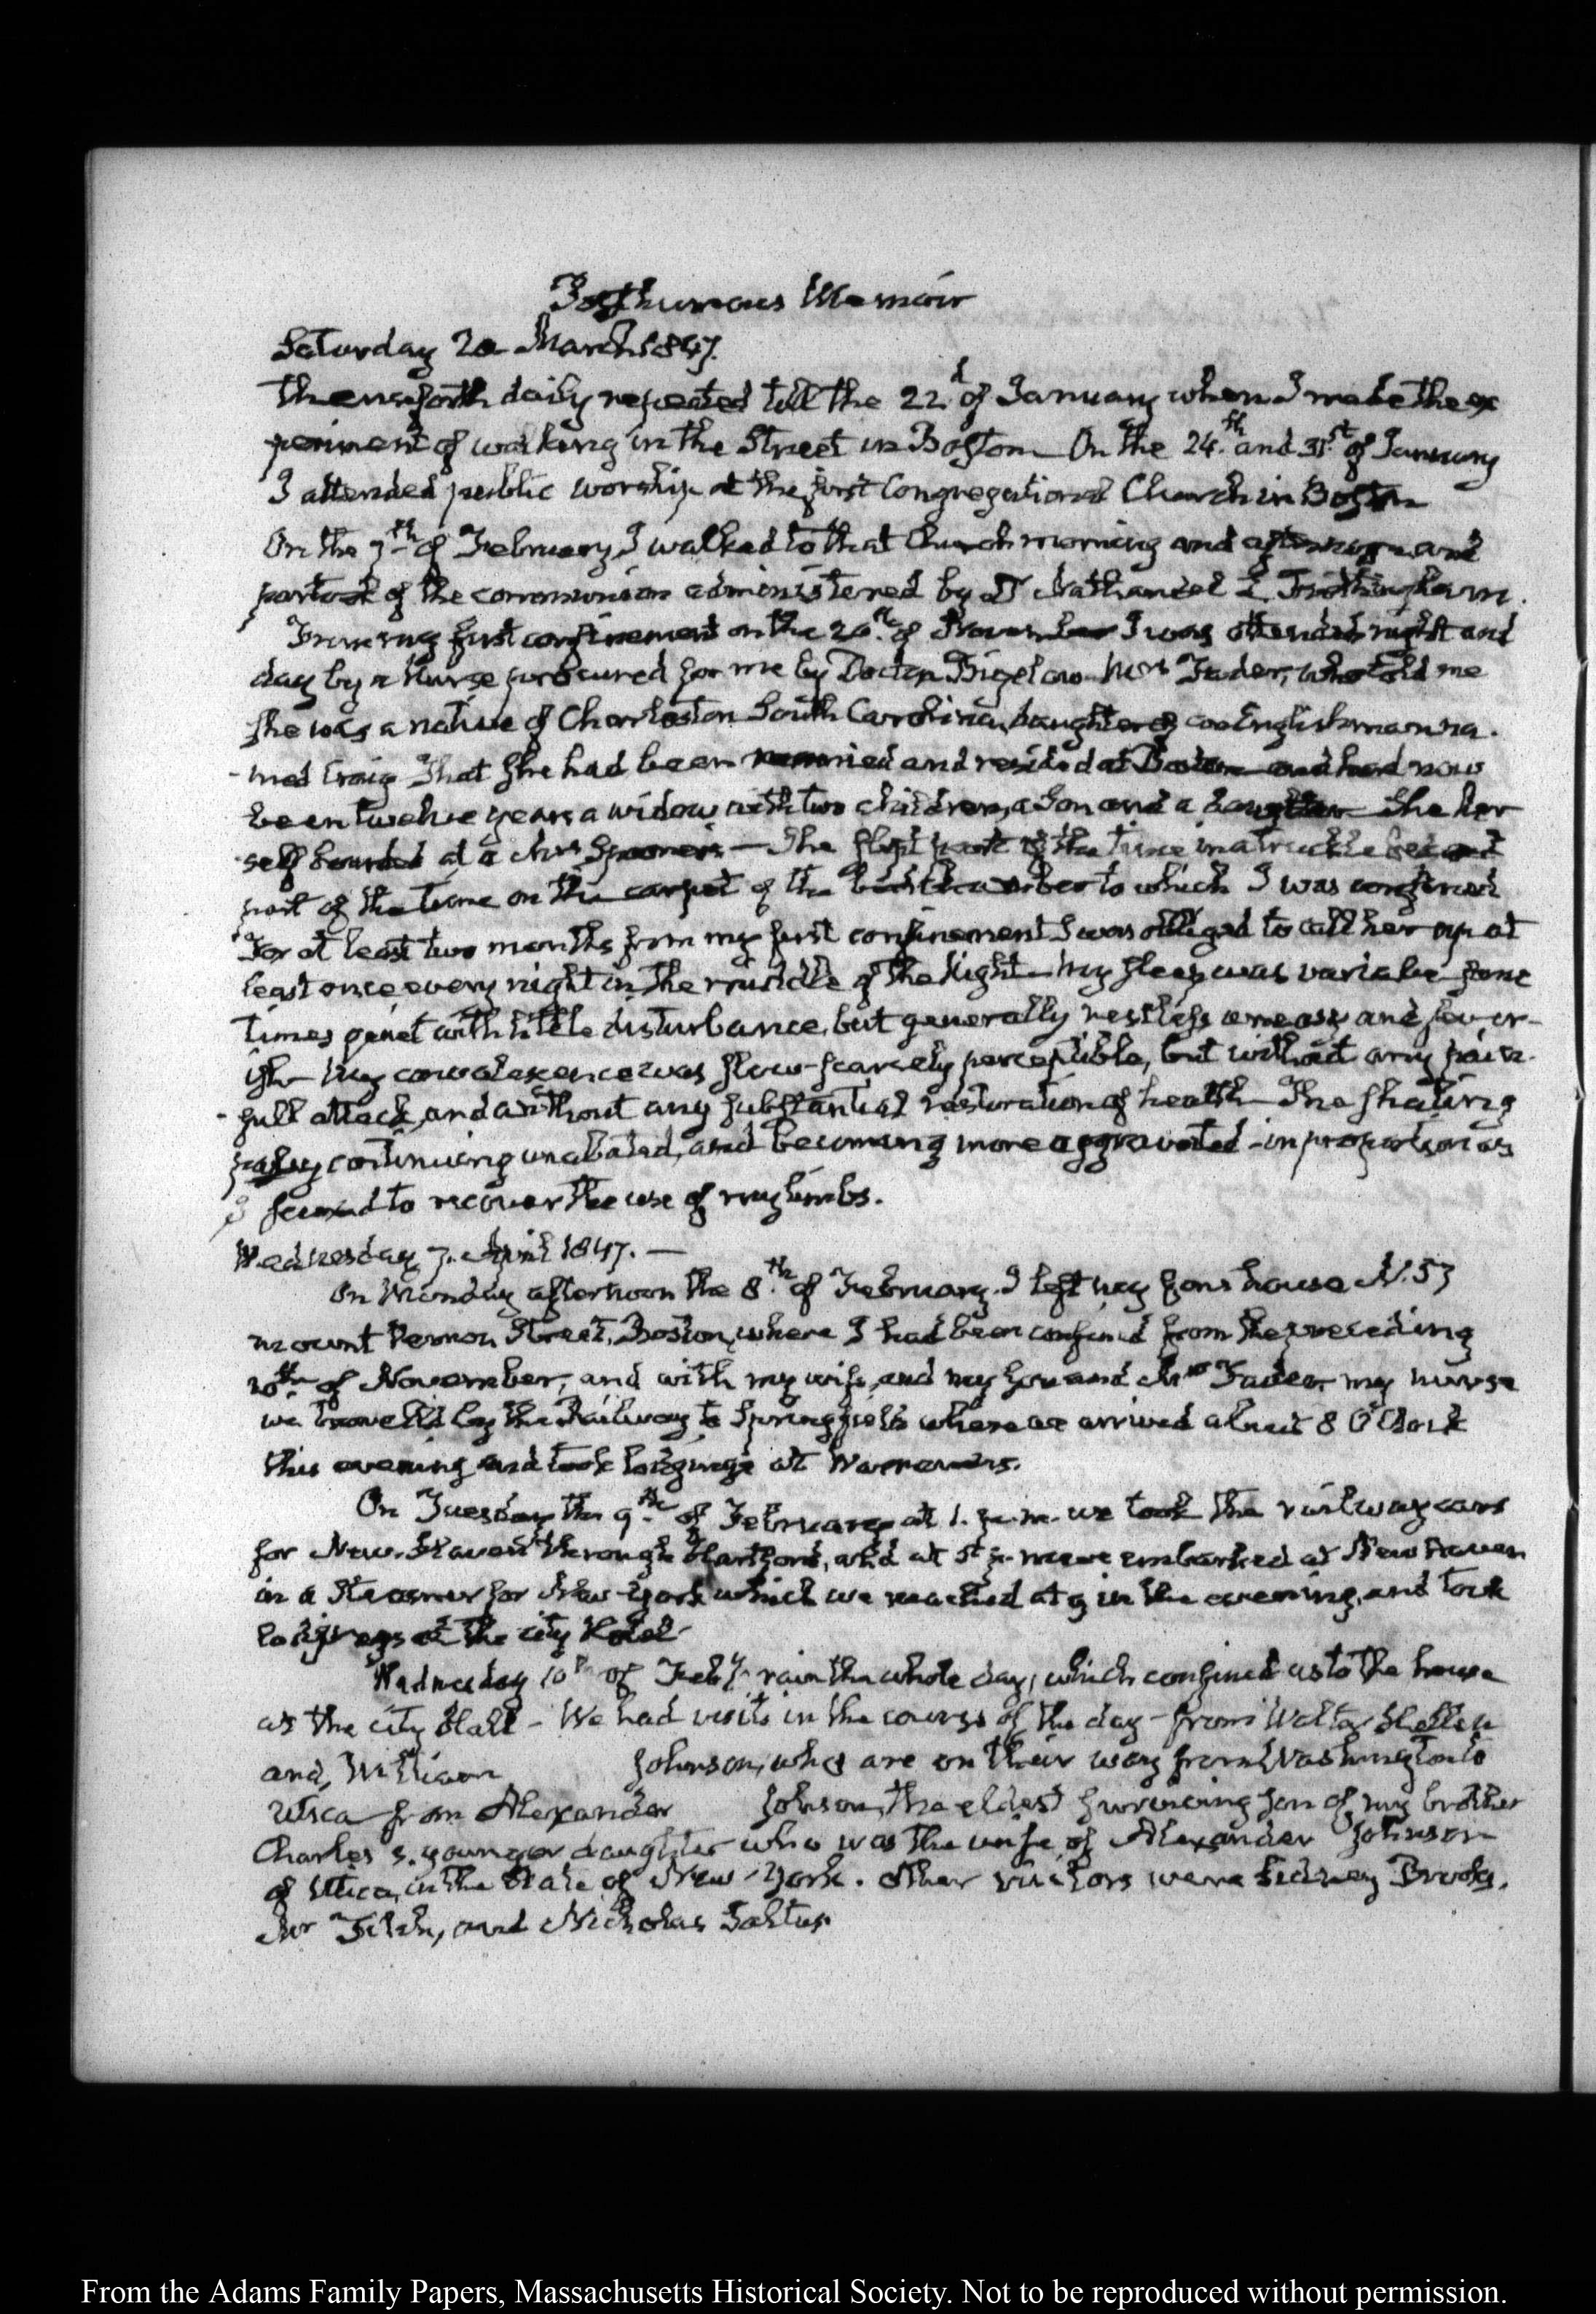 Posthumous Memoir
Saturday 20 March 1847.
Thenceforth daily repeated till the 22.d of January when I made the ex
periment of walking in the Street in Boston On the 24.th and 31.st of January
I attended public worship at the first Congregational Church in Boston
On the 7th of February, I walked to that Church morning and afternoon and
partook of the communion administered by Dr Nathaniel L. Frothingham.
From my first confinement on the 20.th of November I was attended night and
day by a Nurse procured for me by Doctor Bigelow Mrs Fader, who told me
she was a native of Charleston South Carolina, daughter of an Englishman na-
-med Craig That she had been married and resided at Boston and had now
been twelve years a widow with two children, a Son and a daughter She her
self boarded at a Mrs Spooner's — She slept part of the time in a truckle bed and
part of the time on the carpet of the bedchamber to which I was confined
For at least two months from my first confinement I was obliged to call her up at
least once every night in the middle of the Night—My sleep was variable some
times quiet with little disturbance, but generally restless uneasy and fever-
ish My convalescence was slow—scarcely perceptible, but without any pain-
-full attack, and without any substantial restoration of health—The shaking
palsy continuing unabated, and becoming more aggravated in proportion as
I seemed to recover the use of my limbs.
Wednesday 7. April 1847. —
On Monday afternoon the 8.th of February. I left my Sons house N. 57
mount Vernon Street, Boston, where I had been confined from the preceding
20th of November, and with my wife, and my Son and Mrs Fader my nurse
we travelled by the Railway to Springfield where we arrived about 8 O'Clock
this evening and took lodgings at Warreners.
On Tuesday the 9.th of February at 1. p.m. we took the railway cars
for New-Haven through Hartford, and at 5 p. m we embarked at New Haven
in a Steamer for New-York which we reached at 9 in the evening, and took
lodgings at the City Hotel
Wednesday 10th of Feby. rain the whole day, which confined us to the house
at the city Hall - We had visits in the course of the day - from Walter Hellen
and, William Johnson, who are on their way from Washington to
Utica from Alexander Johnson, the eldest surviving son of my brother
Charles's younger daughter who was the wife of Alexander Johnson
of Utica, in the State of New-York. Other visitors were Sidney Brooks,
Mr Fitch, and Nicholas Saltus
From the Adams Family Papers, Massachusetts Historical Society. Not to be reproduced without permission.